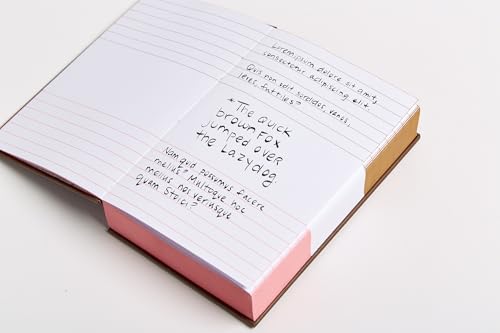 Lorem ipsum dolore sit amt,
consectetur adipiscing elit
Quis non odit sordidos, vanos,
leves, futtiles?
"The quick
brown Fox
jumped over
the Lazy dog
Nam quid possumus facere
melius? Multoque hoc
melius nos verusque
quam Stoici?